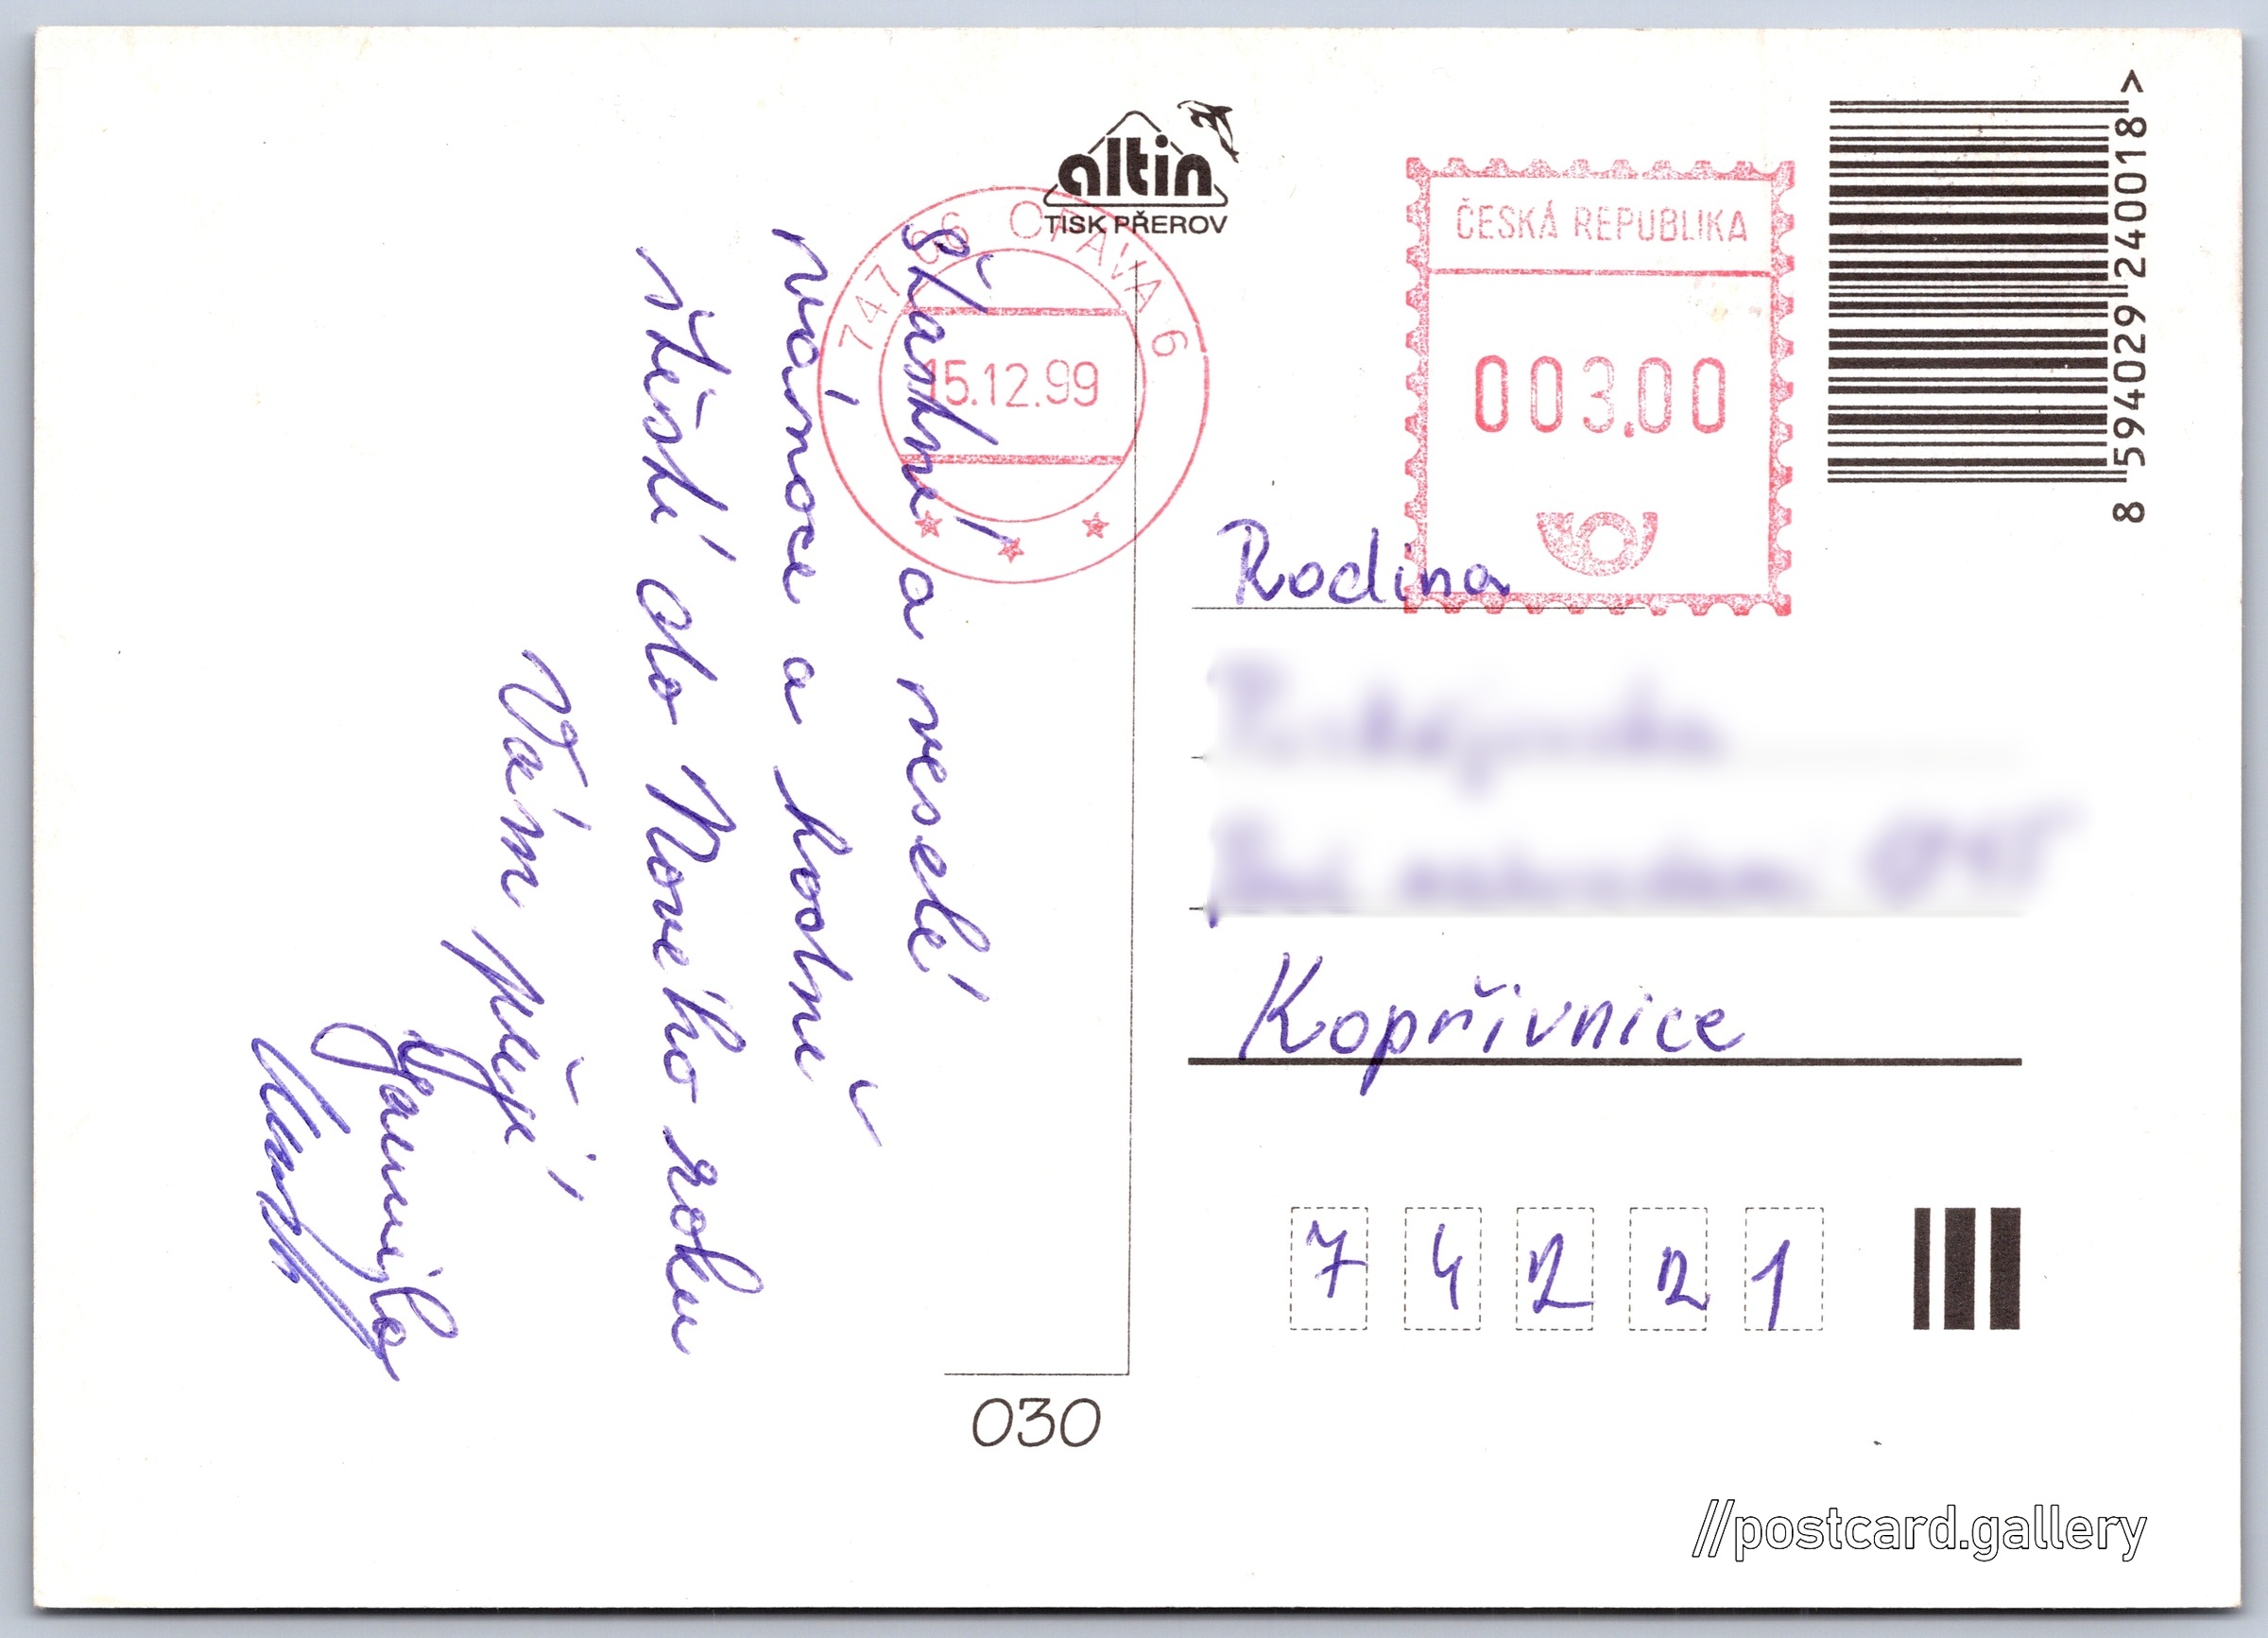 altin
TISK PŘEROV
747 66 OPAVA 6
15.12.99
ČESKÁ REPUBLIKA
003.00
8 594029 240018 >
Šťastné a veselé
vánoce a hodně
štěstí do Nového roku
Vám přejí
Jarmila
Rodina
Kopřivnice
7 4 2 2 1
030
//postcard.gallery